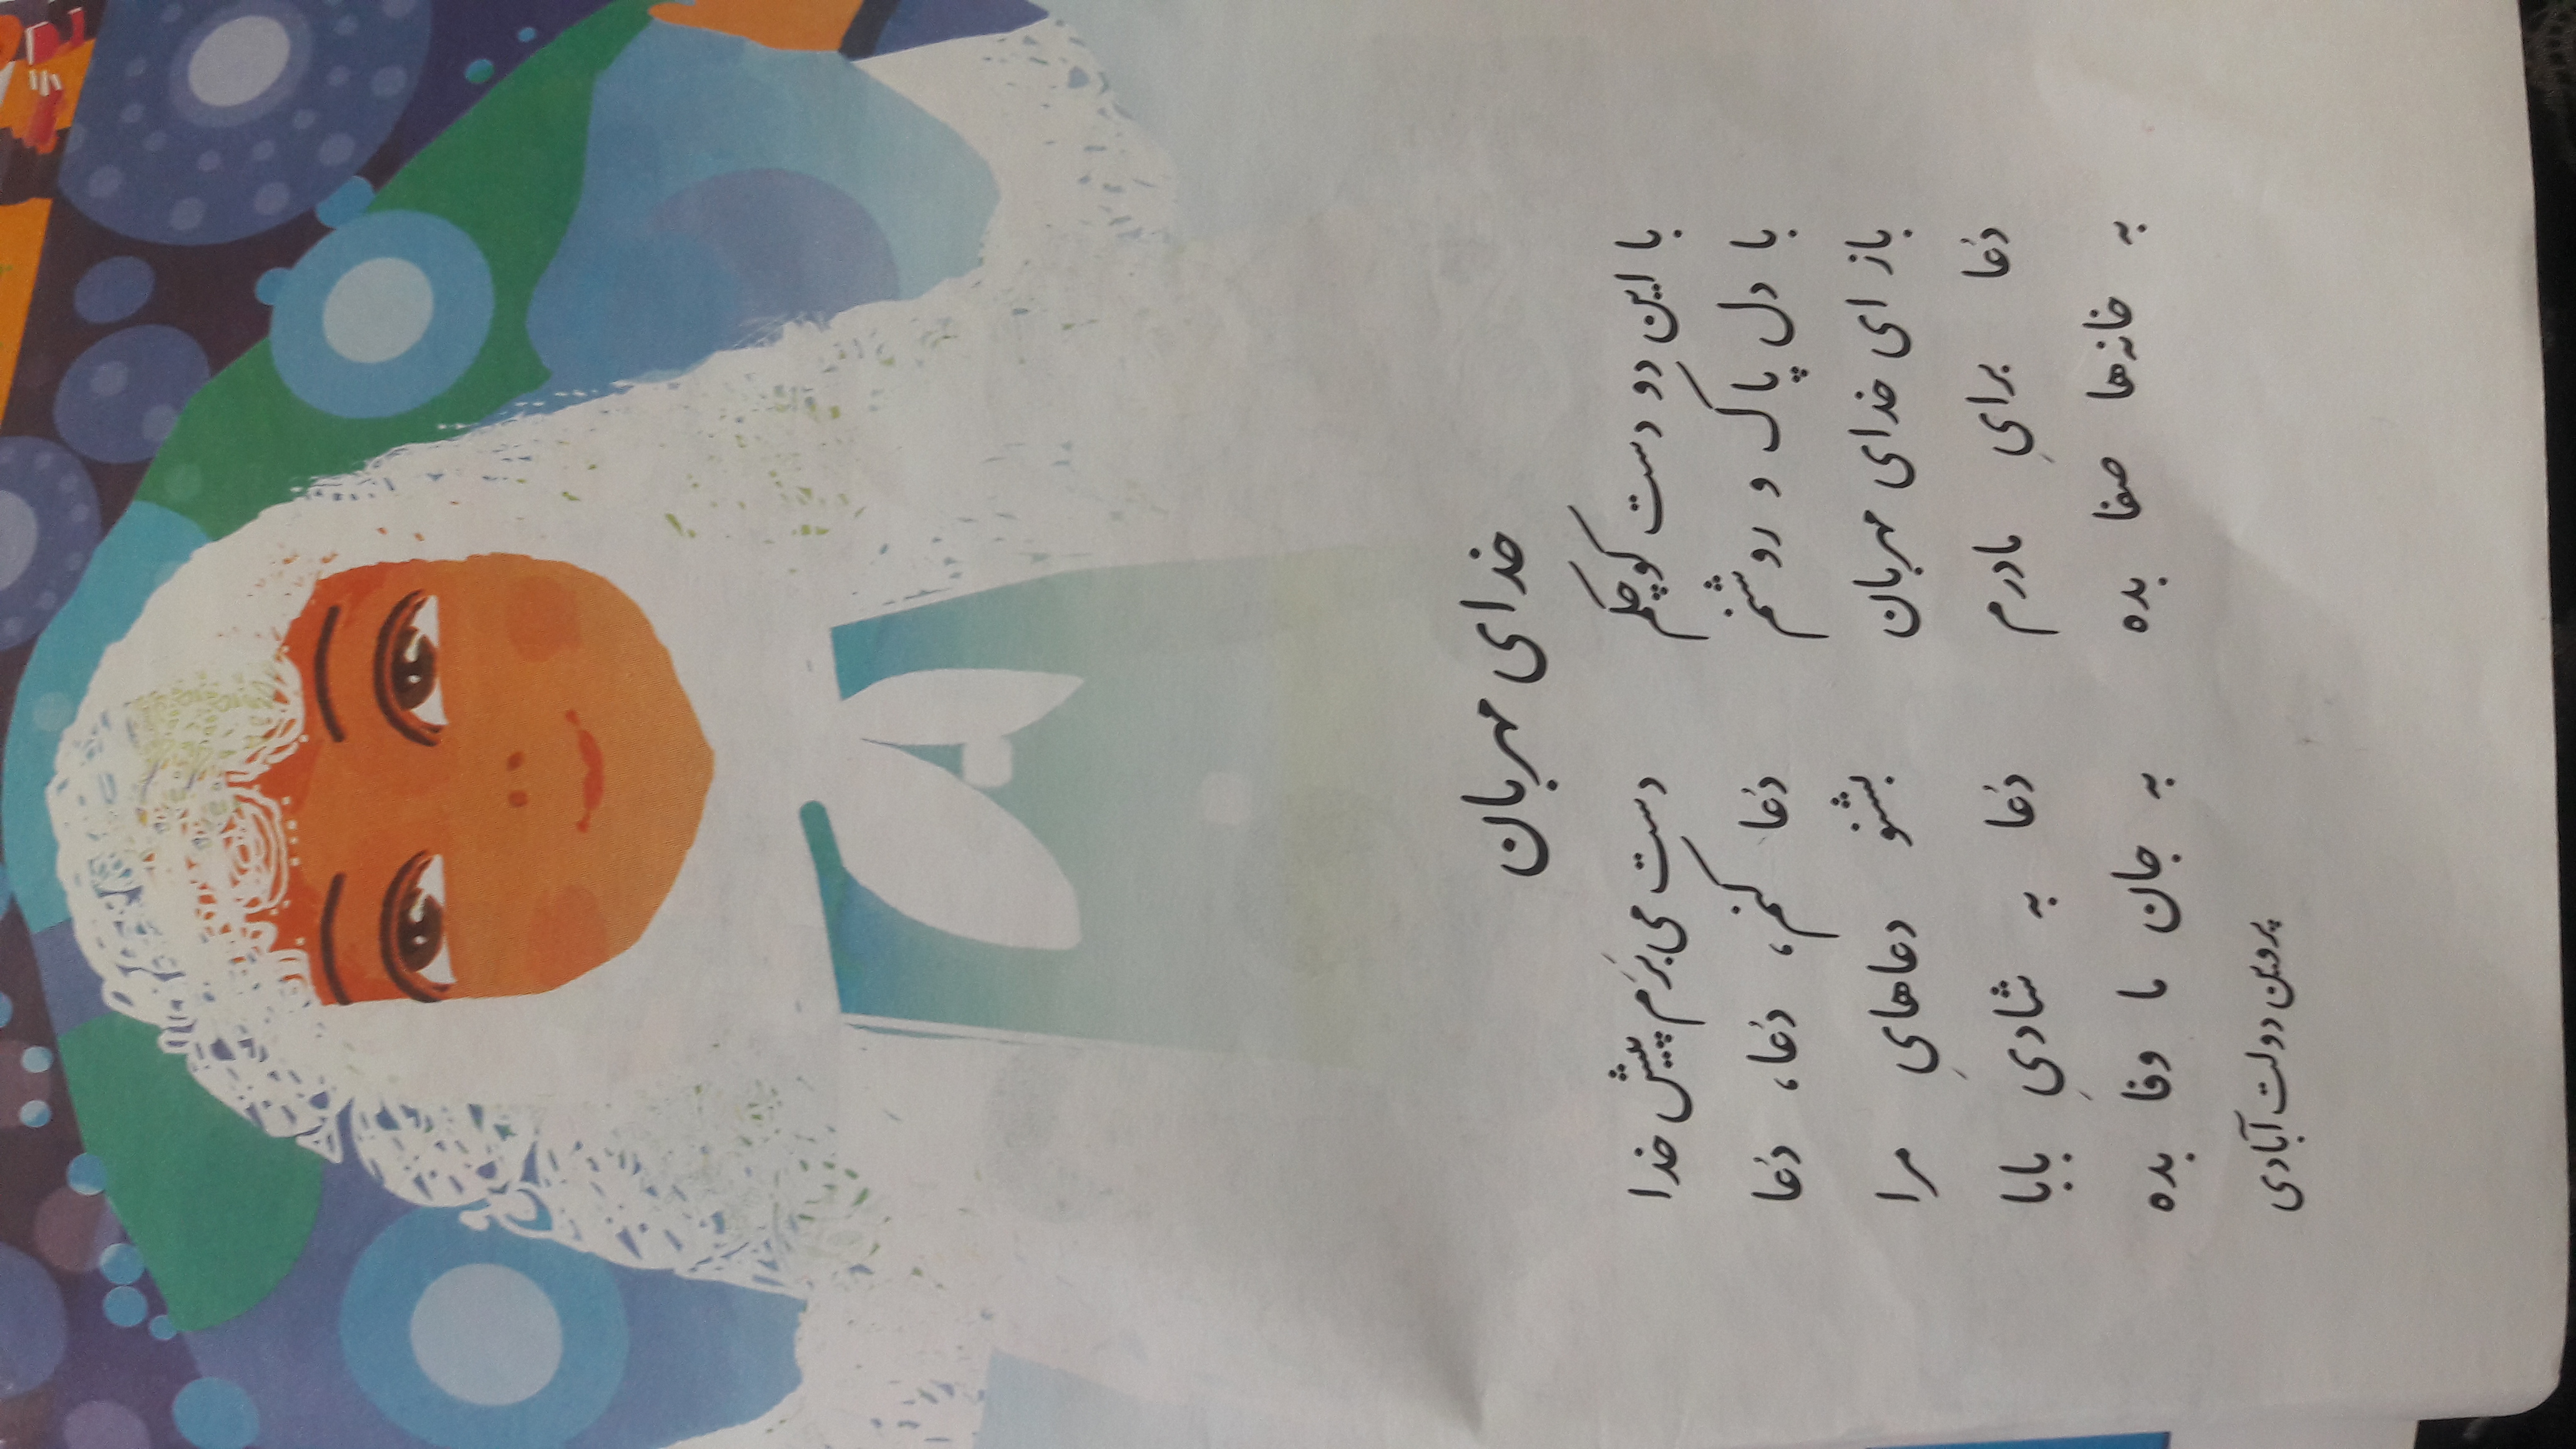 خدای مهربان
با این دو دست کوچکم دست می‌بَرَم پیش خدا
با دل پاک و روشنم دُعا کنم، دُعا، دُعا
باز ای خدای مهربان بشنو دعاهایِ مرا
دُعا برایِ مادرم دُعا به شادیِ بابا
به خانه‌ها صفا بده به جان ما وفا بده
پروین دولت‌آبادی